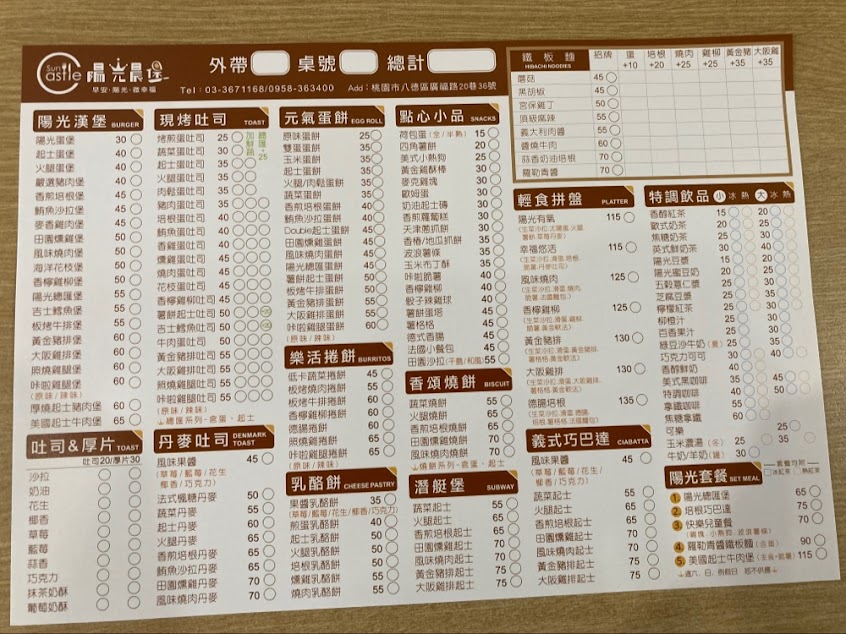 Sun Castle 陽光晨堡
早安‧陽光‧微幸福
外帶 桌號 總計
Tel：03-3671168/0958-363400 Add：桃園市八德區廣福路20巷36號
鐵板麵 HIBACHI NOODLES 招牌 蛋+10 培根+20 燒肉+25 雞柳+25 黃金豬+35 大阪雞+35
蘑菇 45
黑胡椒 45
宮保雞丁 50
頂級麻辣 55
義大利肉醬 55
醬燒牛肉 60
蒜香奶油培根 70
羅勒青醬 70
陽光漢堡 BURGER
陽光蛋堡 30
起士蛋堡 40
火腿蛋堡 40
嚴選豬肉堡 40
香煎培根堡 45
鮪魚沙拉堡 45
麥香雞肉堡 45
田園燻雞堡 50
風味燒肉堡 50
海洋花枝堡 50
香檸雞柳堡 50
陽光總匯堡 55
吉士鱈魚堡 50
板烤牛排堡 50
黃金豬排堡 60
大阪雞排堡 60
照燒雞腿堡 60
咔啦雞腿堡 60
(原味/辣味)
厚燒起士豬肉堡 60
美國起士牛肉堡 65
現烤吐司 TOAST
烤煎蛋吐司 25
蔬菜蛋吐司 30
起士蛋吐司 35
火腿蛋吐司 35
肉鬆蛋吐司 35
豬肉蛋吐司 35
培根蛋吐司 40
鮪魚蛋吐司 40
香雞蛋吐司 40
燻雞蛋吐司 45
燒肉蛋吐司 45
花枝蛋吐司 45
香檸雞柳吐司 45
薯餅起士吐司 50
吉士鱈魚吐司 50
牛肉蛋吐司 50
黃金豬排吐司 55
大阪雞排吐司 55
照燒雞腿吐司 55
咔啦雞腿吐司 55
(原味/辣味)
↓總匯系列-倉蛋、起士
加鮮蔬
總匯+25
元氣蛋餅 EGG ROLL
原味蛋餅 25
雙蛋蛋餅 35
玉米蛋餅 35
起士蛋餅 35
火腿/肉鬆蛋餅 35
蔬菜蛋餅 35
香煎培根蛋餅 40
鮪魚沙拉蛋餅 40
Double起士蛋餅 45
田園燻雞蛋餅 45
風味燒肉蛋餅 45
陽光總匯蛋餅 50
薯餅起士蛋餅 50
板烤牛排蛋餅 50
黃金豬排蛋餅 55
大阪雞排蛋餅 55
咔啦雞腿蛋餅 60
(原味/辣味)
點心小品 SNACKS
荷包蛋(全/半熟) 15
四角薯餅 20
美式小熱狗 25
黃金雞酥棒 30
麥克雞塊 30
歐姆蛋 30
奶油起士磚 30
香煎蘿蔔糕 30
天津蔥抓餅 30
香椿/地瓜抓餅 35
波浪薯條 35
玉米布丁酥 35
咔啦脆薯 40
香檸雞柳 40
骰子辣雞球 40
薯餅蛋塔 40
薯格格 40
德式香腸 40
法國小餐包 45
田園沙拉(千島/和風) 55
輕食拼盤 PLATTER
陽光有氧 115
幸福悠活 115
風味燒肉 125
香檸雞柳 125
黃金豬排 130
大阪雞排 130
德腸培根 135
特調飲品 小 冰 熱 大 冰 熱
香醇紅茶 15 20
歐式奶茶 20 25
焦糖奶茶 25 30
英式鮮奶茶 30 40
陽光豆漿 15 20
陽光蜜豆奶 20 25
五穀薏仁漿 25 30
芝麻豆漿 25 30
檸檬紅茶 25 30
柳橙汁 25 30
百香果汁 25 30
綠豆沙牛奶 30 35
巧克力可可 30 40
香醇鮮奶 30
美式黑咖啡 35 45
特調咖啡 40 50
拿鐵咖啡 55
焦糖拿鐵 60
可樂 20
玉米濃湯(冬) 25 35
牛奶/羊奶(鐘) 30
樂活捲餅 BURRITOS
低卡蔬菜捲餅 45
板烤豬肉捲餅 50
板烤牛排捲餅 60
香檸雞柳捲餅 60
德腸捲餅 60
照燒雞捲餅 65
咔啦雞捲餅 65
(原味/辣味)
香頌燒餅 BISCUIT
蔬菜燒餅 55
火腿燒餅 60
香煎培根燒餅 65
田園燻雞燒餅 70
風味燒肉燒餅 70
↓燒餅系列-倉蛋、起士
吐司&厚片 TOAST
吐司20/厚片30
沙拉
奶油
花生
椰香
草莓
藍莓
蒜香
巧克力
抹茶奶酥
葡萄奶酥
丹麥吐司 DENMARK TOAST
風味果醬 45
(草莓/藍莓/花生
椰香/巧克力)
法式楓糖丹麥 50
蔬菜丹麥 55
起士丹麥 60
火腿丹麥 65
香煎培根丹麥 65
鮪魚沙拉丹麥 65
田園燻雞丹麥 70
風味燒肉丹麥 70
乳酪餅 CHEESE PASTRY
果醬乳酪餅 35
(草莓/藍莓/花生/椰香/巧克力)
煎蛋乳酪餅 40
起士乳酪餅 50
火腿乳酪餅 50
培根乳酪餅 50
燻雞乳酪餅 55
燒肉乳酪餅 55
潛艇堡 SUBWAY
蔬菜起士 55
火腿起士 60
香煎培根起士 65
田園燻雞起士 70
風味燒肉起士 70
黃金豬排起士 75
大阪雞排起士 75
義式巧巴達 CIABATTA
風味果醬 45
(草莓/藍莓/花生/
椰香/巧克力)
蔬菜起士 55
火腿起士 60
香煎培根起士 65
田園燻雞起士 70
風味燒肉起士 70
黃金豬排起士 75
大阪雞排起士 75
陽光套餐 SET MEAL
1 陽光總匯堡 65
2 培根巧巴達 75
3 快樂兒童餐 75
(雞塊,小熱狗,波浪薯條)
4 羅勒青醬鐵板麵(含蛋) 90
5 美國起士牛肉堡 115